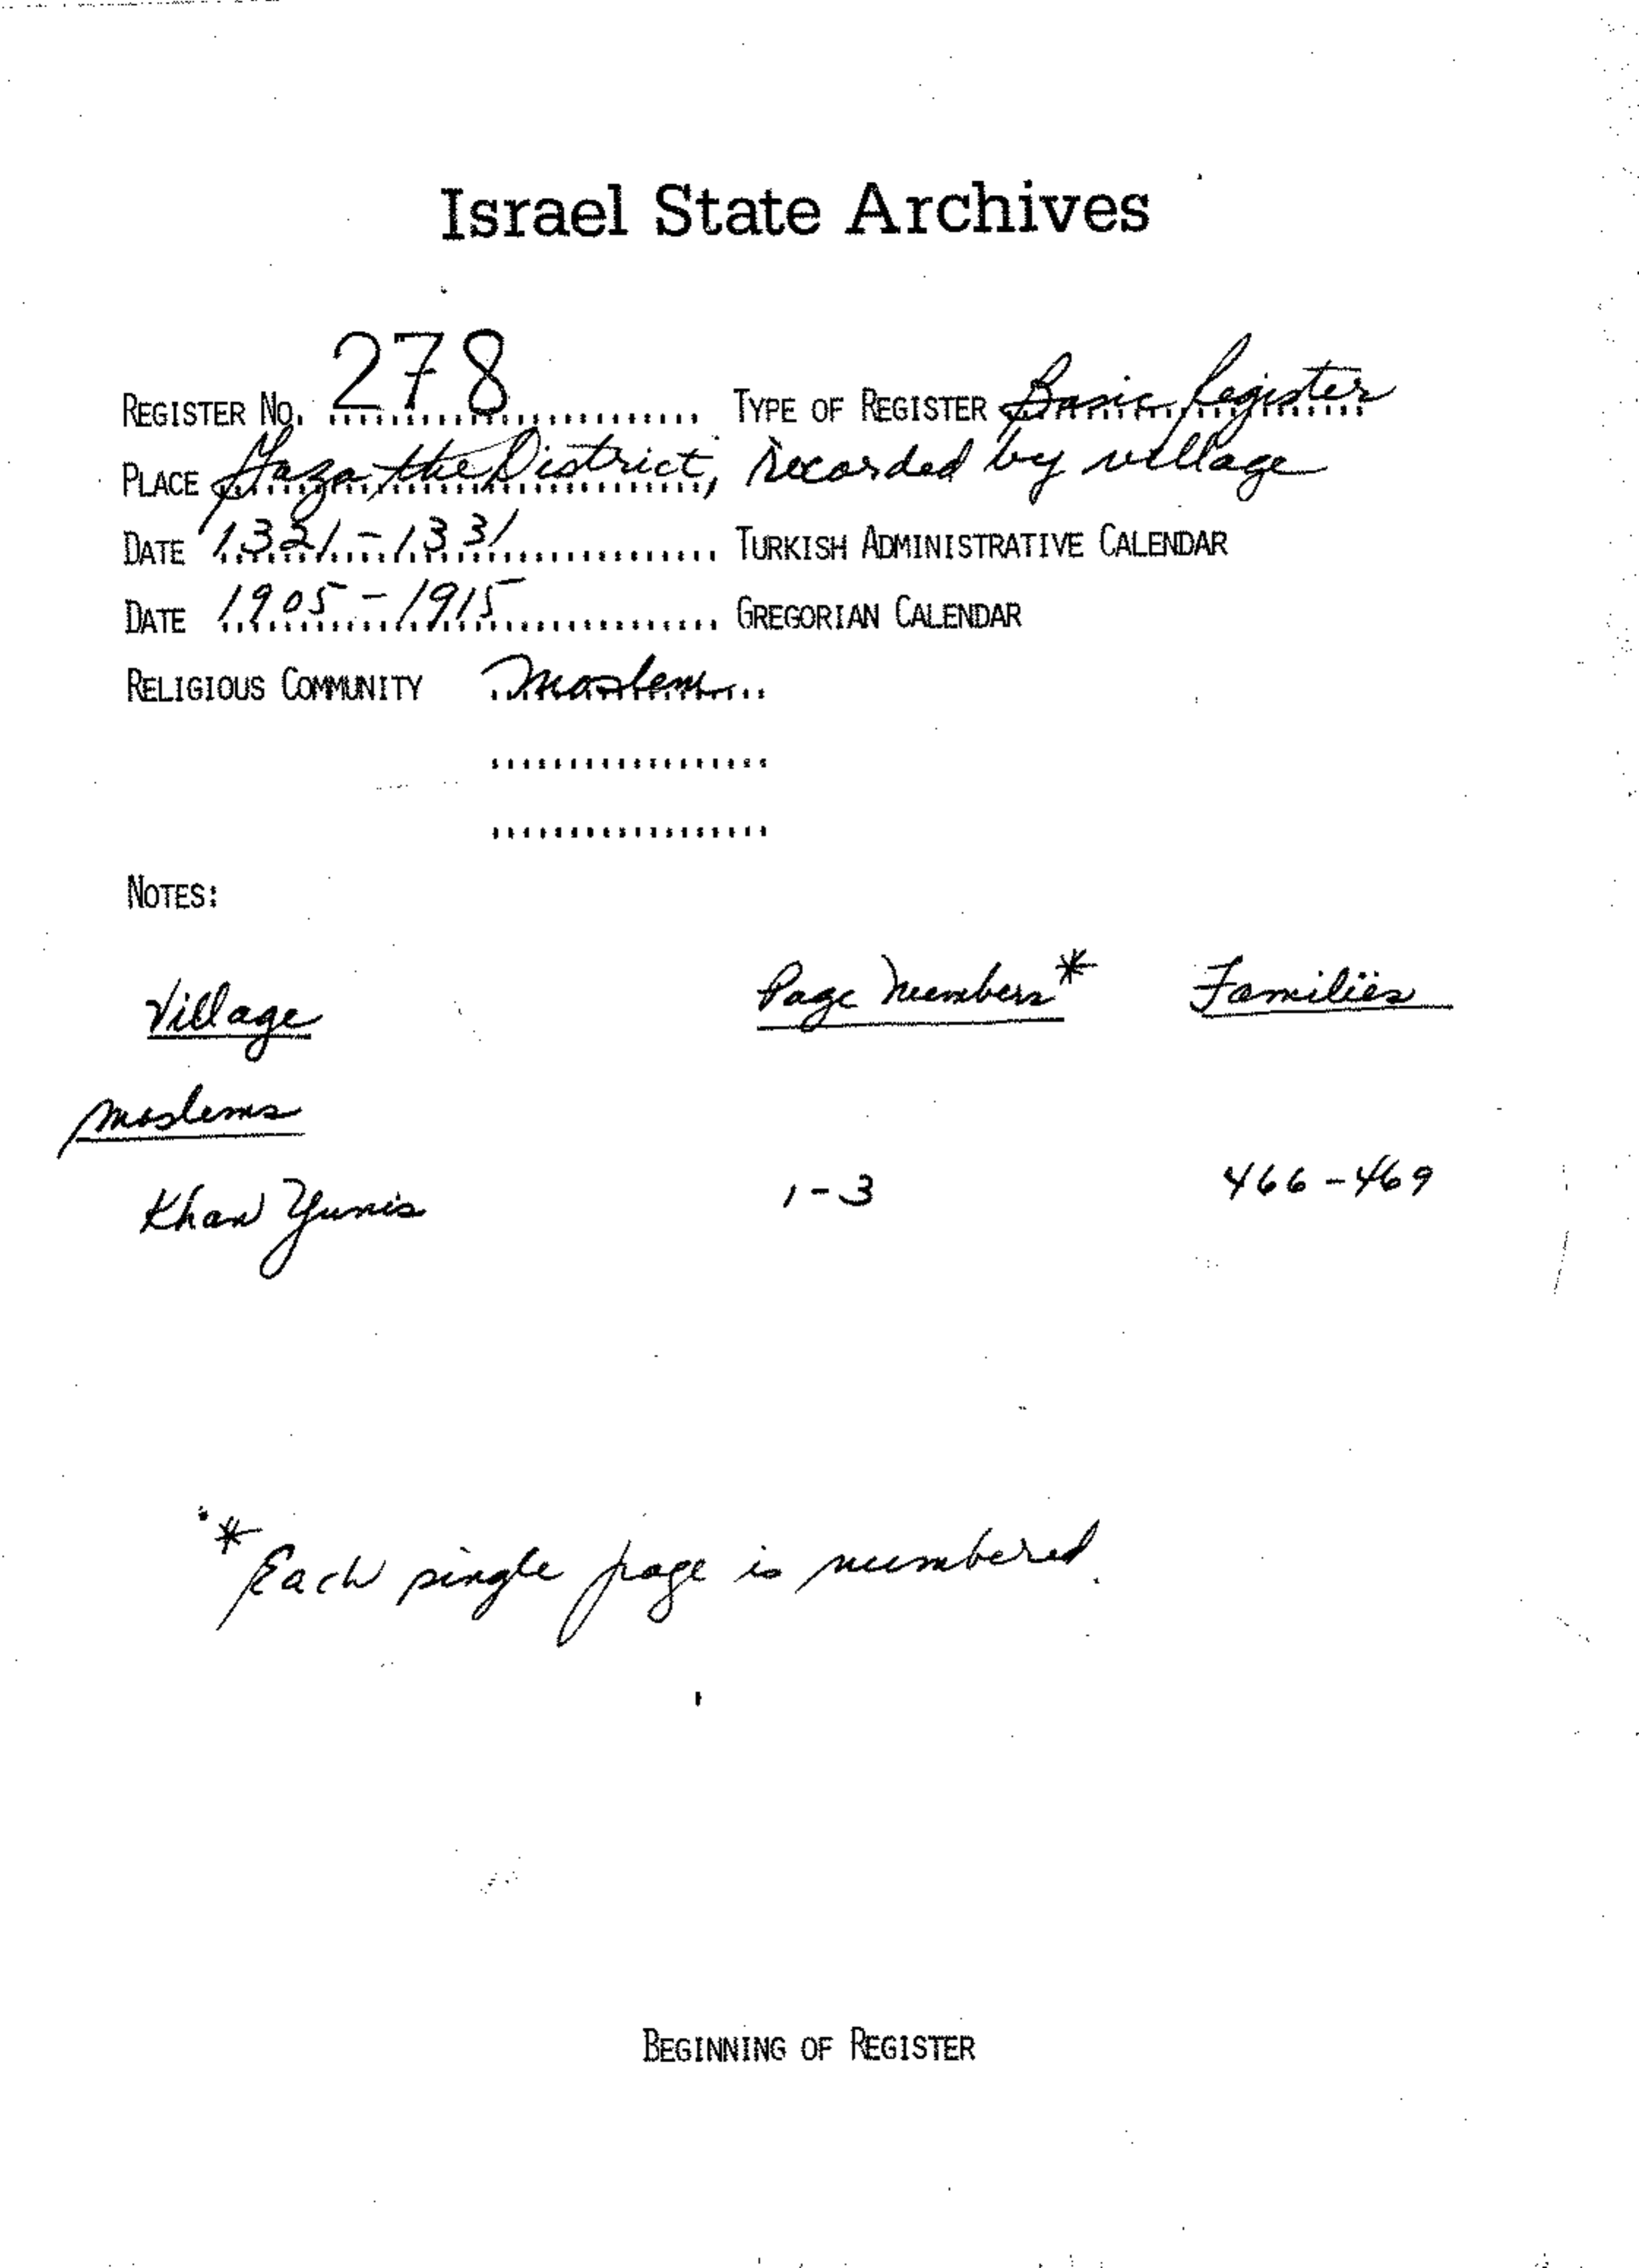 Israel State Archives
REGISTER NO. 278 TYPE OF REGISTER Basic Register
PLACE Gaza, the District, recorded by village
DATE 1321-1331 TURKISH ADMINISTRATIVE CALENDAR
DATE 1905-1915 GREGORIAN CALENDAR
RELIGIOUS COMMUNITY Moslem
NOTES:
Village Page Numbers* Families
Moslems
Khan Yunis 1-3 466-469
* Each single page is numbered.
BEGINNING OF REGISTER